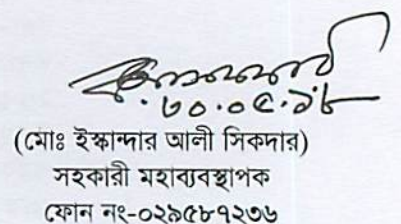 ৩০.০৫.১৮
(মোঃ ইস্কান্দার আলী সিকদার)
সহকারী মহাব্যবস্থাপক
ফোন নং-০২৯৫৮৭২৩৬